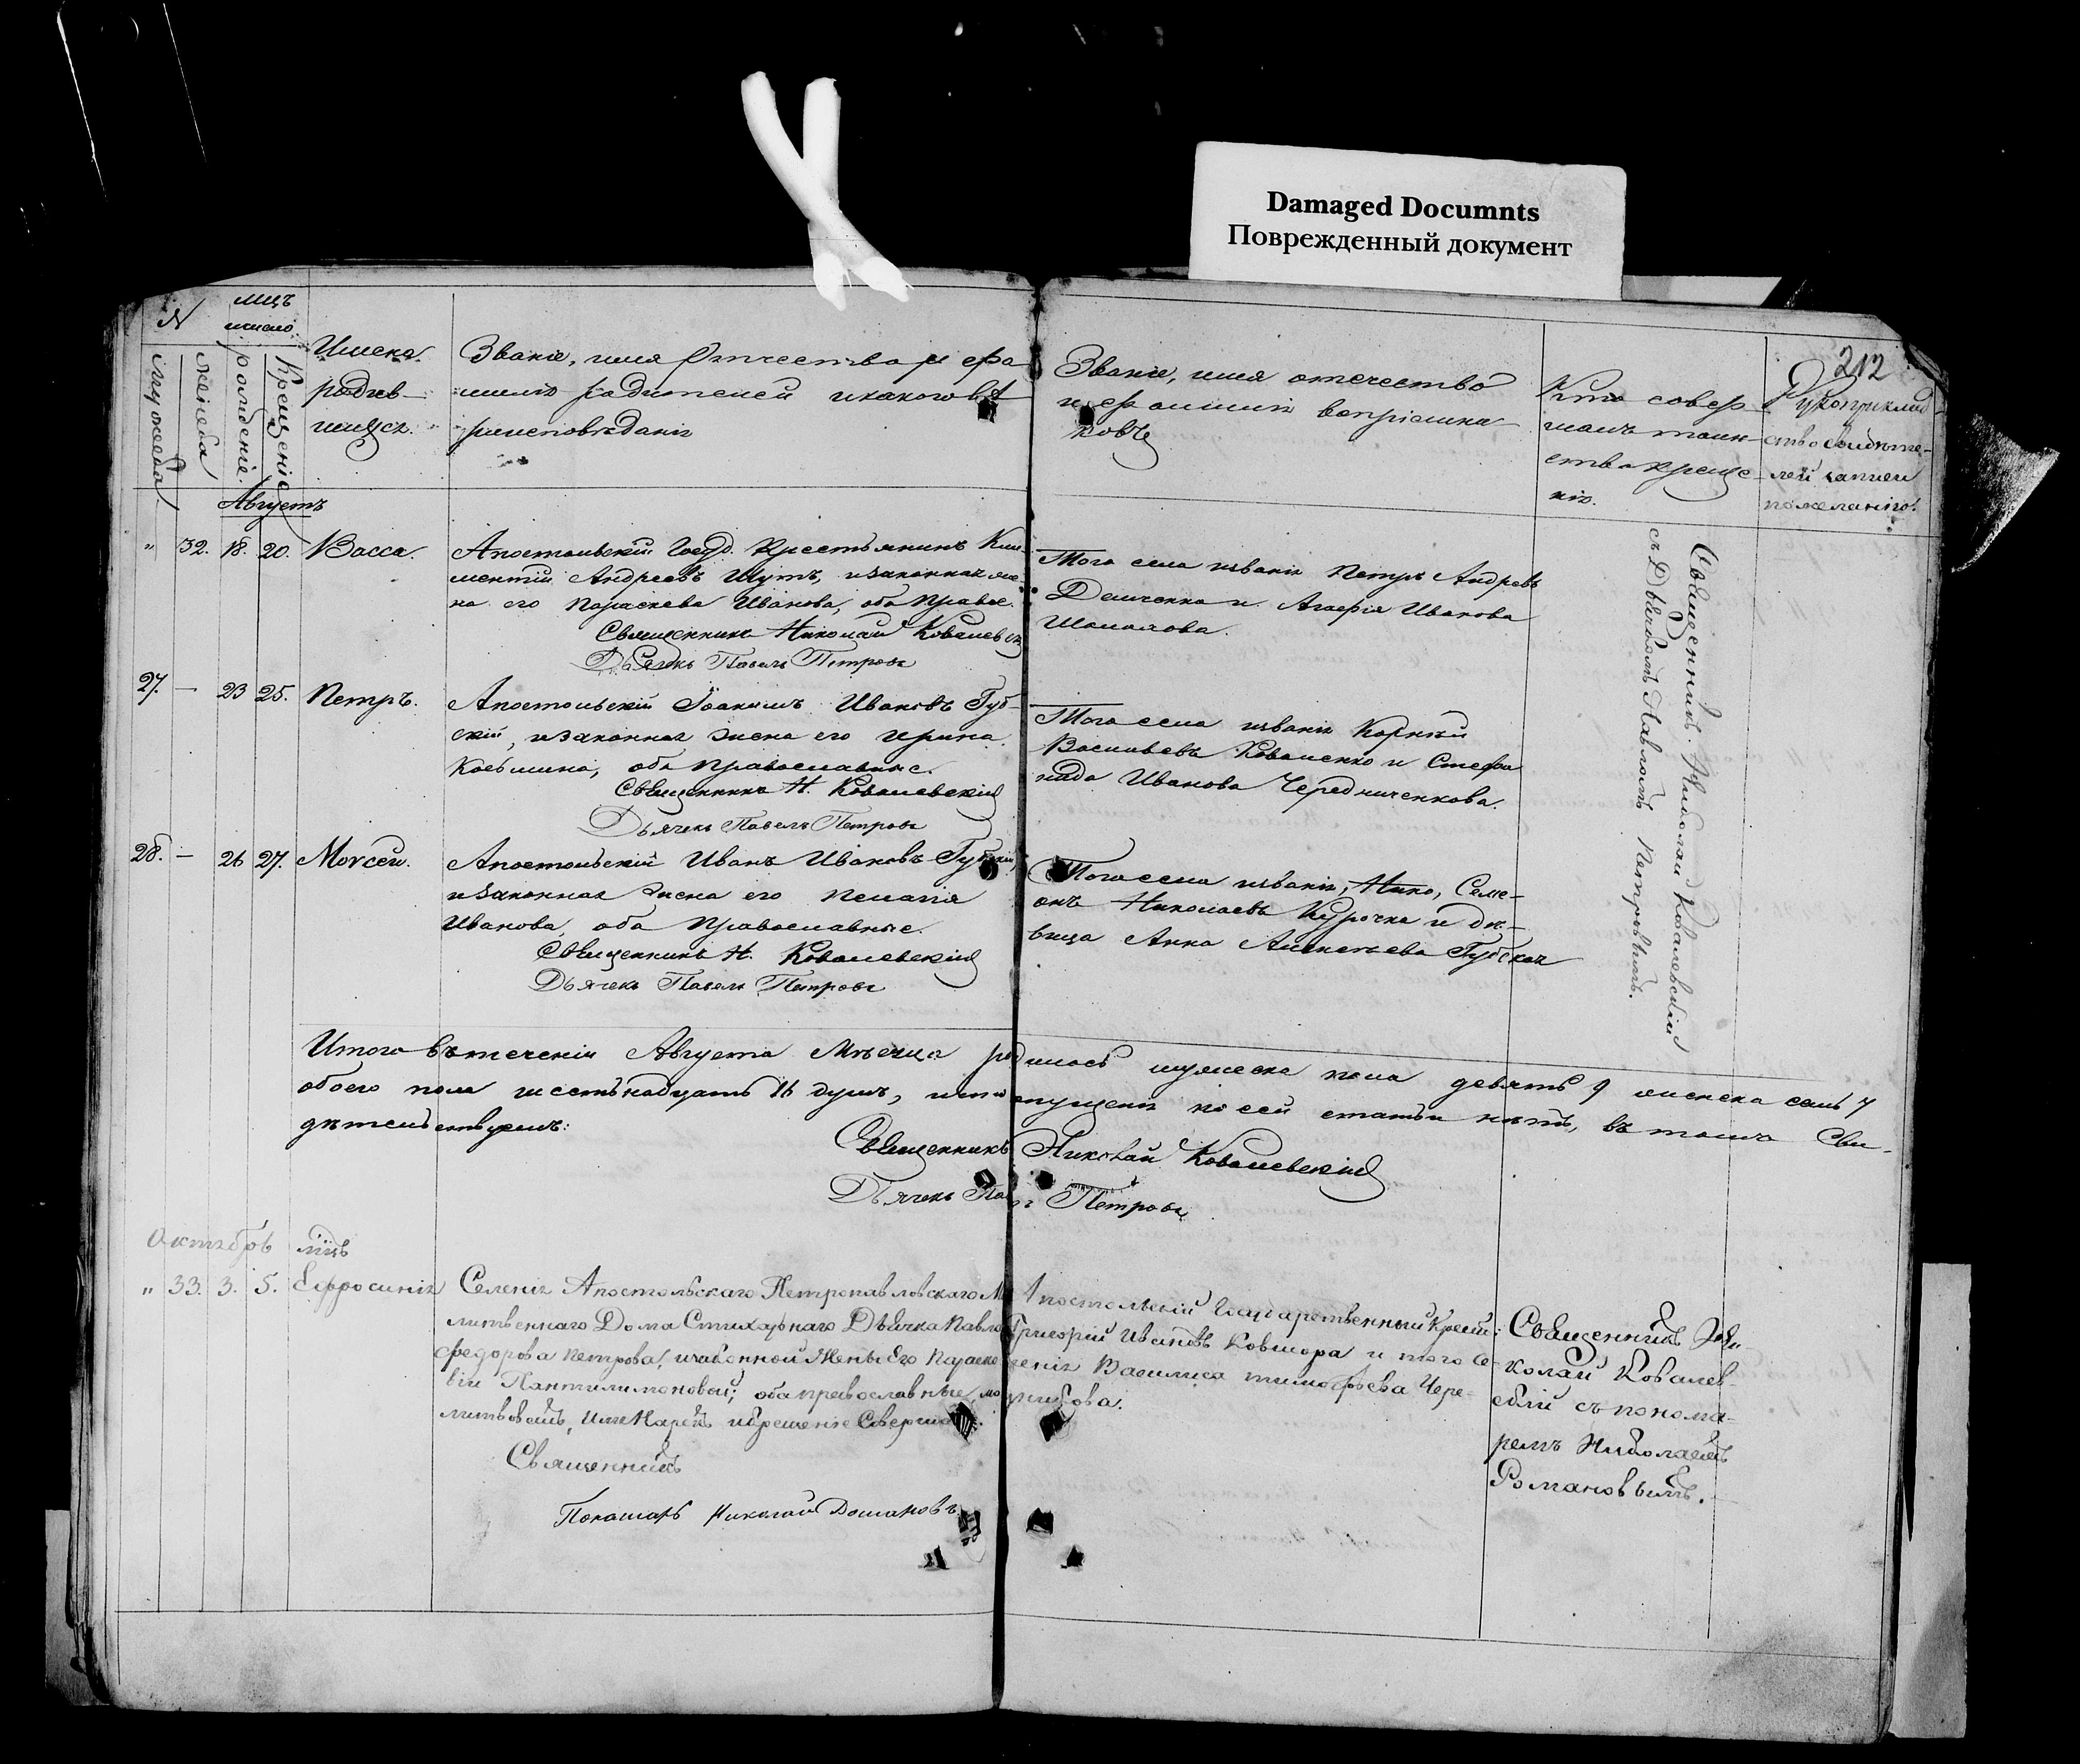 Damaged Documnts
Поврежденный документ
212
№
мцъ
число
мужеска
женска
рожденіе.
Крещеніе
Имена
родив-
шихся.
Званіе, имя Отчество и фа
милія родителей и какого вѣ
роисповѣданія
Званіе, имя отечество
и фамилія воспріемни
ковъ
Кто совер
шалъ таин-
ство креще
нія.
Рукоприклад
ство свидѣте-
лей записи
по желанію.
Августъ
" 32. 18. 20. Васса.
Апостольскій Госуд. Крестьянинъ Кли
ментій Андреевъ Шутъ, и законная же
на его Параскева Иванова, оба правос.
Священникъ Николай Ковалевск
Дьячекъ Павелъ Петровъ
Того села и званія Петръ Андреевъ
Демченко и Агафія Иванова
27. — 23 25. Петръ.
Апостольскій Іоакимъ Ивановъ Губ-
скій, и законная жена его Ирина
Козьмина, оба православные.
Священникъ Н. Ковалевскій
Дьячекъ Павелъ Петровъ
Того села и званія Корнѣй
Васильевъ Коваленко и Стефа
нида Иванова Чередниченкова.
28. — 26 27. Моѵсей.
Апостольскій Иванъ Ивановъ Губскій,
и законная жена его Пелагія
Иванова, оба православные.
Священникъ Н. Ковалевскій
Дьячекъ Павелъ Петровъ
Того села и званія, Нико, Семе-
онъ Николаевъ Курочка и дѣ-
вица Анна Алексѣева Губская
Священникъ Николай Ковалевскій
съ Дьячкомъ Павломъ Петровымъ.
Итого въ теченіи Августа Мѣсяца родилось мужеска пола девять 9 женска семь 7
обоего пола шестьнадцать 16 душъ, и что опущенія по сей статьи нѣтъ, въ томъ Сви-
дѣтельствуемъ:
Священникъ Николай Ковалевскій
Дьячекъ Павелъ Петровъ
Октябрь мцъ
" 33. 3. 5. Ефросинія
Селенія Апостольскаго Петропавловскаго Мо
литвеннаго Дома Стихарнаго Дьячка Павла
Федорова Петрова, и законной Жены Его Параске
віи Пантилимоновой; оба православные, мо
литвовалъ, имя Нарекъ и Крещеніе Совершалъ.
Священникъ
Пономарь Николай Романовъ
Апостольскій Государственный Крест:
Григорій Ивановъ Ковшора и того Се-
ленія Василиса Тимофѣева Чере-
дникова.
Священникъ Ни-
колай Ковалев-
скій съ понома-
ремъ Николаемъ
Романовымъ.